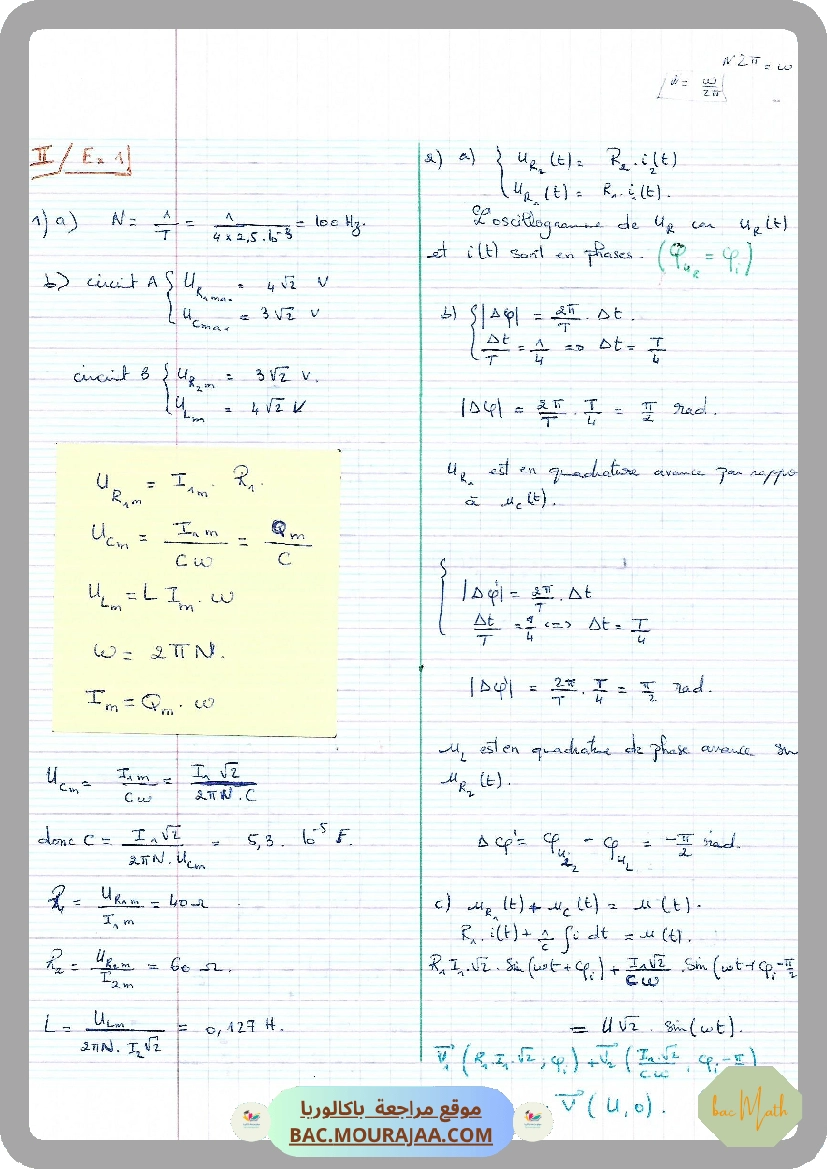 N 2π = ω
N = ω/2π
II / Ex 1
1) a) N = 1/T = 1/(4 x 2,5 . 10⁻³) = 100 Hz.
b) circuit A { U_R₁max = 4√2 V
U_Cmax = 3√2 V
circuit B { U_R₂m = 3√2 V.
U_Lm = 4√2 V
U_R₁m = I₁m . R₁.
U_Cm = I₁m/Cω = Q_m/C
U_Lm = L I_m . ω
ω = 2πN.
I_m = Q_m . ω
U_Cm = I₁m/Cω = I₁√2/2πN.C
donc C = I₁√2/2πN.U_Cm = 5,3 . 10⁻⁵ F.
R₁ = U_R₁m/I₁m = 40 Ω
R₂ = U_R₂m/I₂m = 60 Ω.
L = U_Lm/2πN . I₂√2 = 0,127 H.
2) a) { u_R₂(t) = R₂ . i₂(t)
u_R₁(t) = R₁ . i₁(t).
L'oscillogramme de u_R car u_R(t)
et i(t) sont en phases. (φ_uR = φ_i)
b) { |Δφ| = 2π/T . Δt.
Δt/T = 1/4 => Δt = T/4
|Δφ| = 2π/T . T/4 = π/2 rad.
u_R₁ est en quadrature avance par rappo
à u_C(t).
{ |Δφ'| = 2π/T . Δt
Δt/T = 1/4 <=> Δt = T/4
|Δφ'| = 2π/T . T/4 = π/2 rad.
u_L est en quadrature de phase avance su
u_R₂(t).
Δφ' = φ_uR₂ - φ_uL = -π/2 rad.
c) u_R₁(t) + u_C(t) = u(t).
R₁ . i(t) + 1/C ∫ i dt = u(t).
R₁I₁.√2 . Sin(ωt + φ_i) + I₁√2/Cω . Sin(ωt + φ_i - π/2
= U√2 . sin(ωt).
V₁→ (R₁.I₁.√2 ; φ_i) + V₂→ (I₁.√2/Cω , φ_i - π/2)
V→ (U, 0).
bac Math
موقع مراجعة باكالوريا
BAC.MOURAJAA.COM